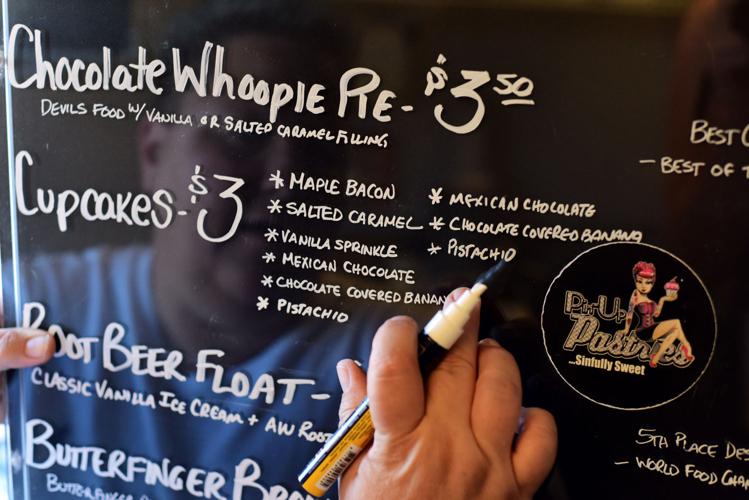 Chocolate Whoopie Pie - $3 50
Devils Food w/ Vanilla or Salted Caramel Filling
Cupcakes - $3
* Maple Bacon
* Salted Caramel
* Vanilla Sprinkle
* Mexican Chocolate
* Chocolate Covered Banan
* Pistachio
* Mexican Chocolate
* Chocolate Covered Banana
* Pistachio
Root Beer Float -
Classic Vanilla Ice Cream + AW Root
Butterfinger
Best
- Best of
Pin-Up
Pastries
...Sinfully Sweet
5th Place
- World Food